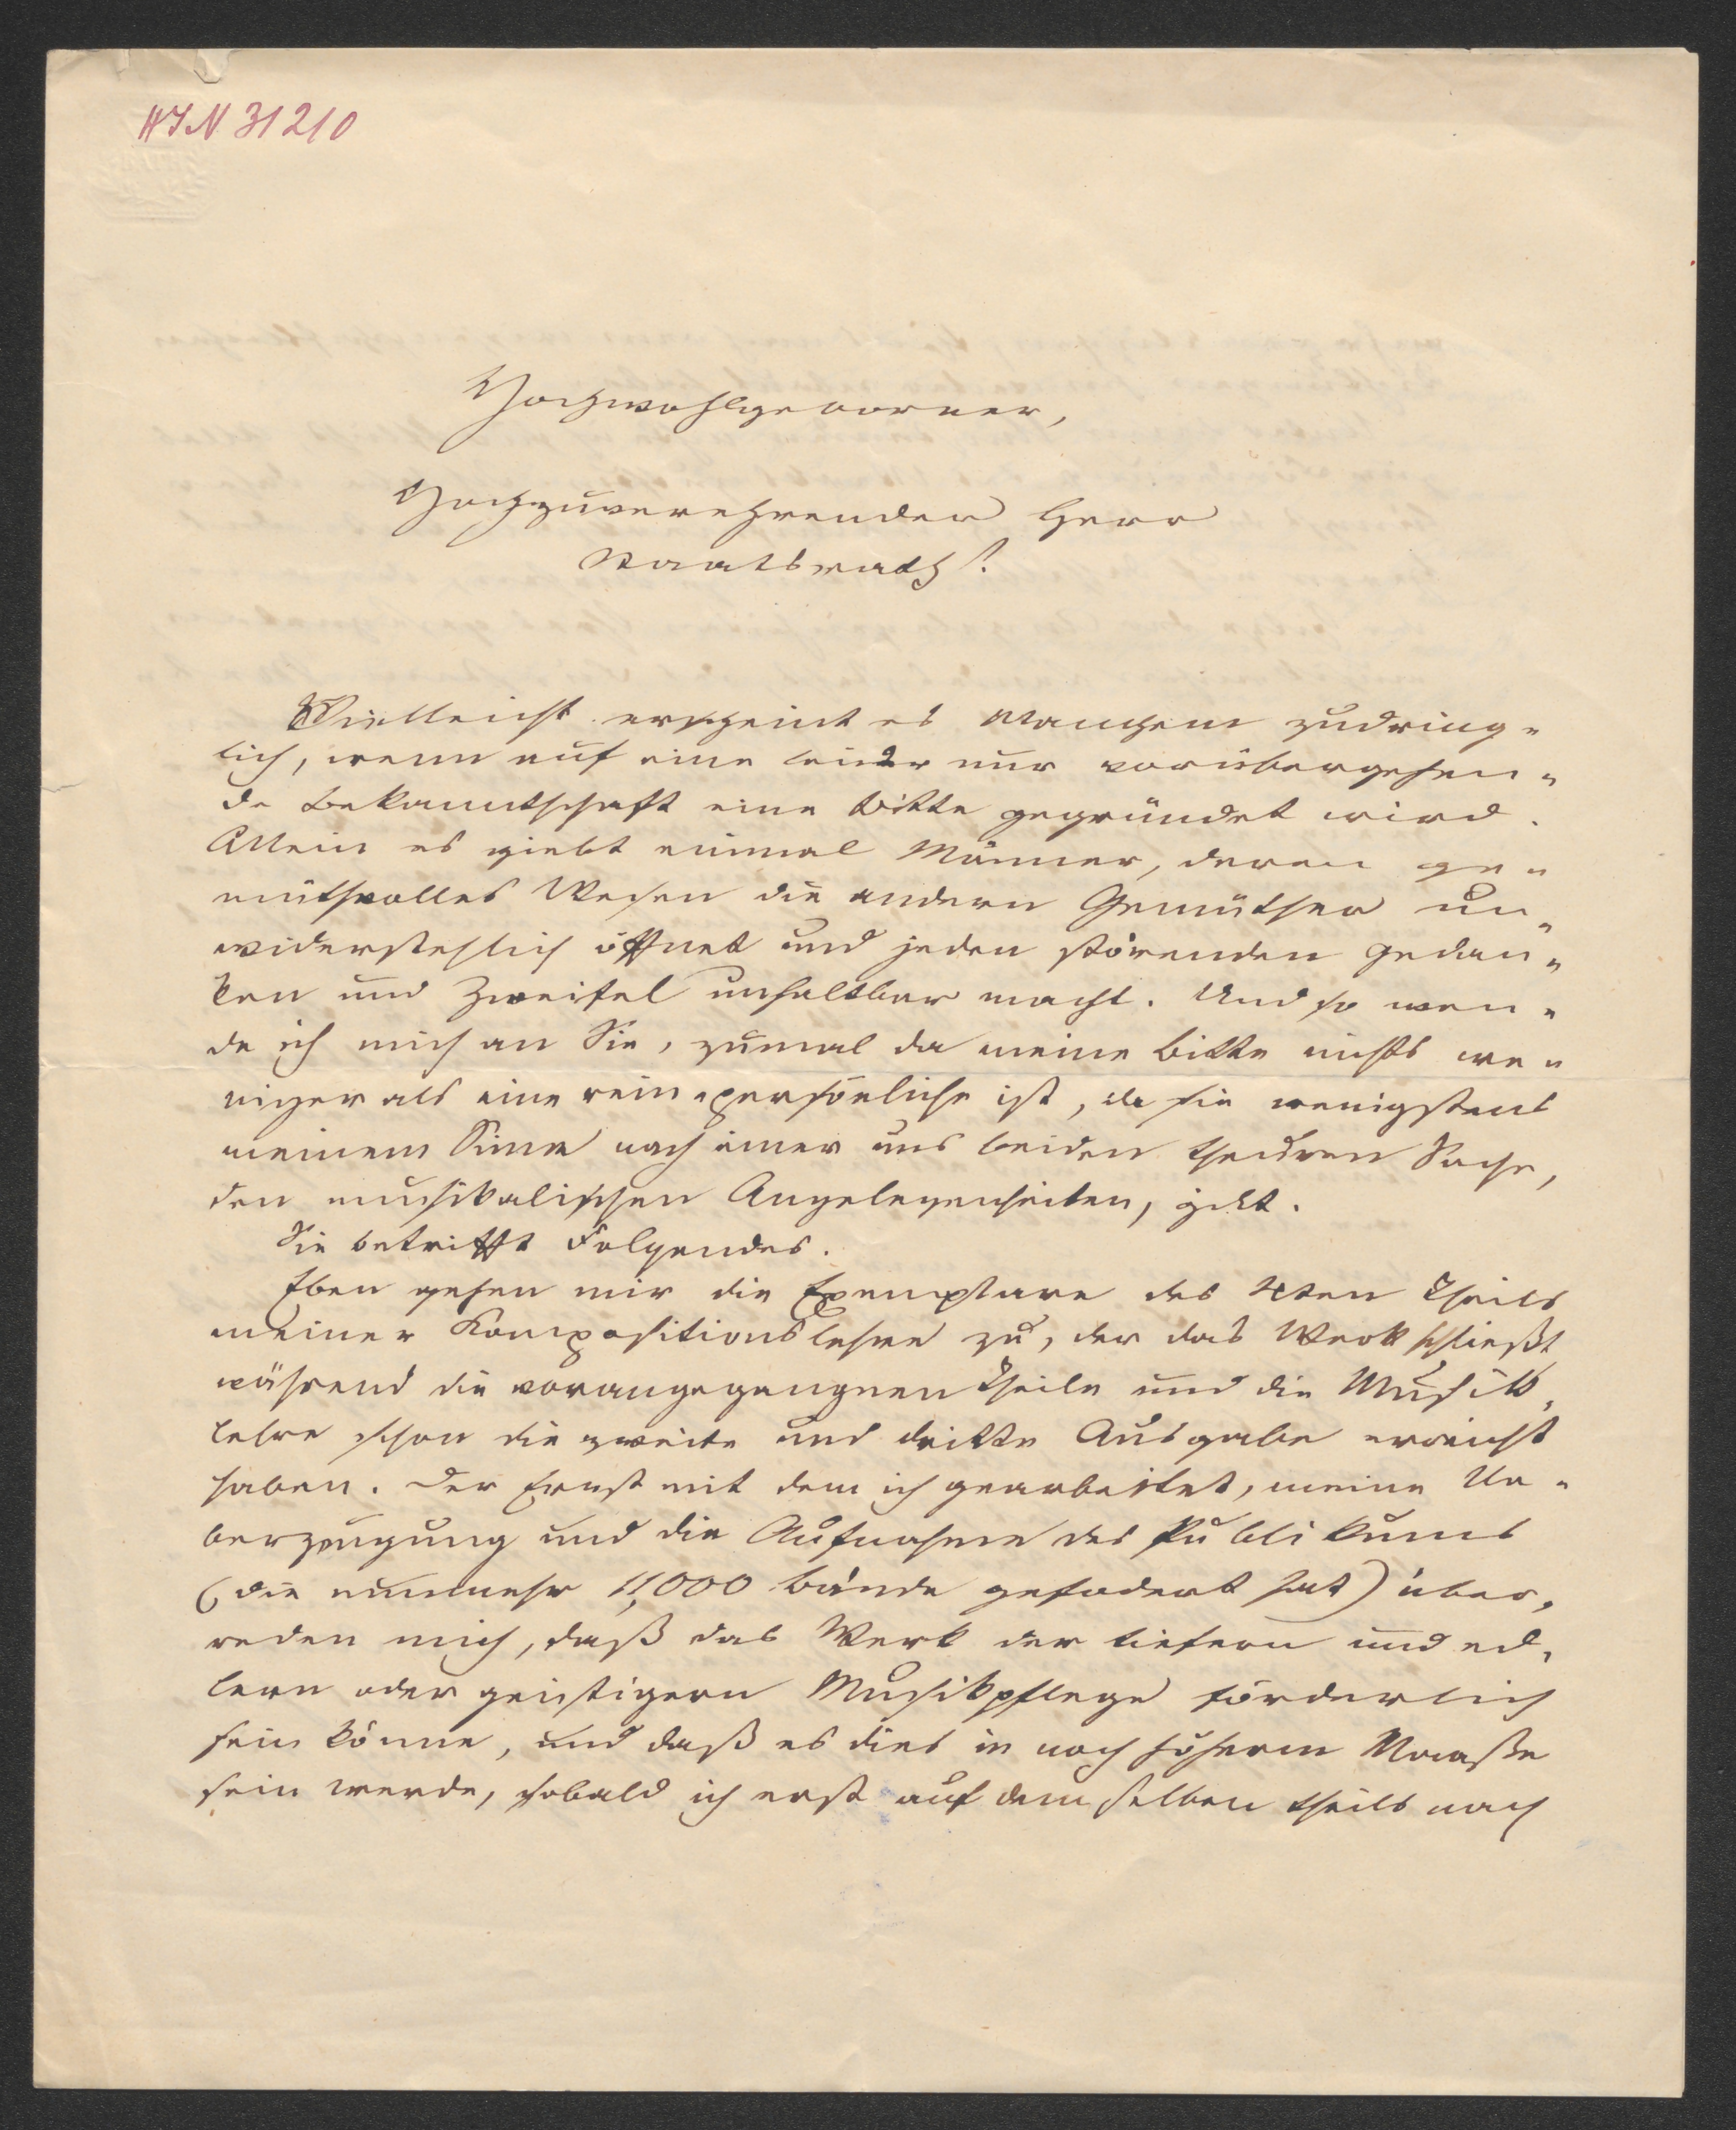 HIN 31210
Hochwohlgeborner,
Hochzuverehrender Herr
Staatsrath!
Vielleicht erscheint es Manchem zudring-
lich, wenn auf eine leider nur vorübergehen-
de Bekanntschaft eine Bitte gegründet wird.
Allein es giebt einmal Männer, deren ge-
müthvolles Wesen die andern Gemüther un-
widerstehlich öffnet und jeden störenden Gedan-
ken und Zweifel unhaltbar macht. Und so wen-
de ich mich an Sie, zumal da meine Bitte nichts we-
niger als eine rein persönliche ist, da sie wenigstens
meinem Sinne nach einer uns beiden theuren Sache,
den musikalischen Angelegenheiten, gilt.
Sie betrifft Folgendes.
Eben gehen mir die Exemplare des 4ten Theils
meiner Kompositionslehre zu, der das Werk schließt,
während die vorangegangnen Theile und die Musik-
lehre schon die zweite und dritte Ausgabe erreicht
haben. Der Ernst mit dem ich gearbeitet, meine Ue-
berzeugung und die Aufnahme des Publikums
(die nunmehr 11,000 Bände gefodert hat) über-
reden mich, daß das Werk der tiefern und ed-
lern oder geistigern Musikpflege förderlich
sein könne, und daß es dies in noch höherm Maaße
sein werde, sobald ich erst auf demselben theils nach